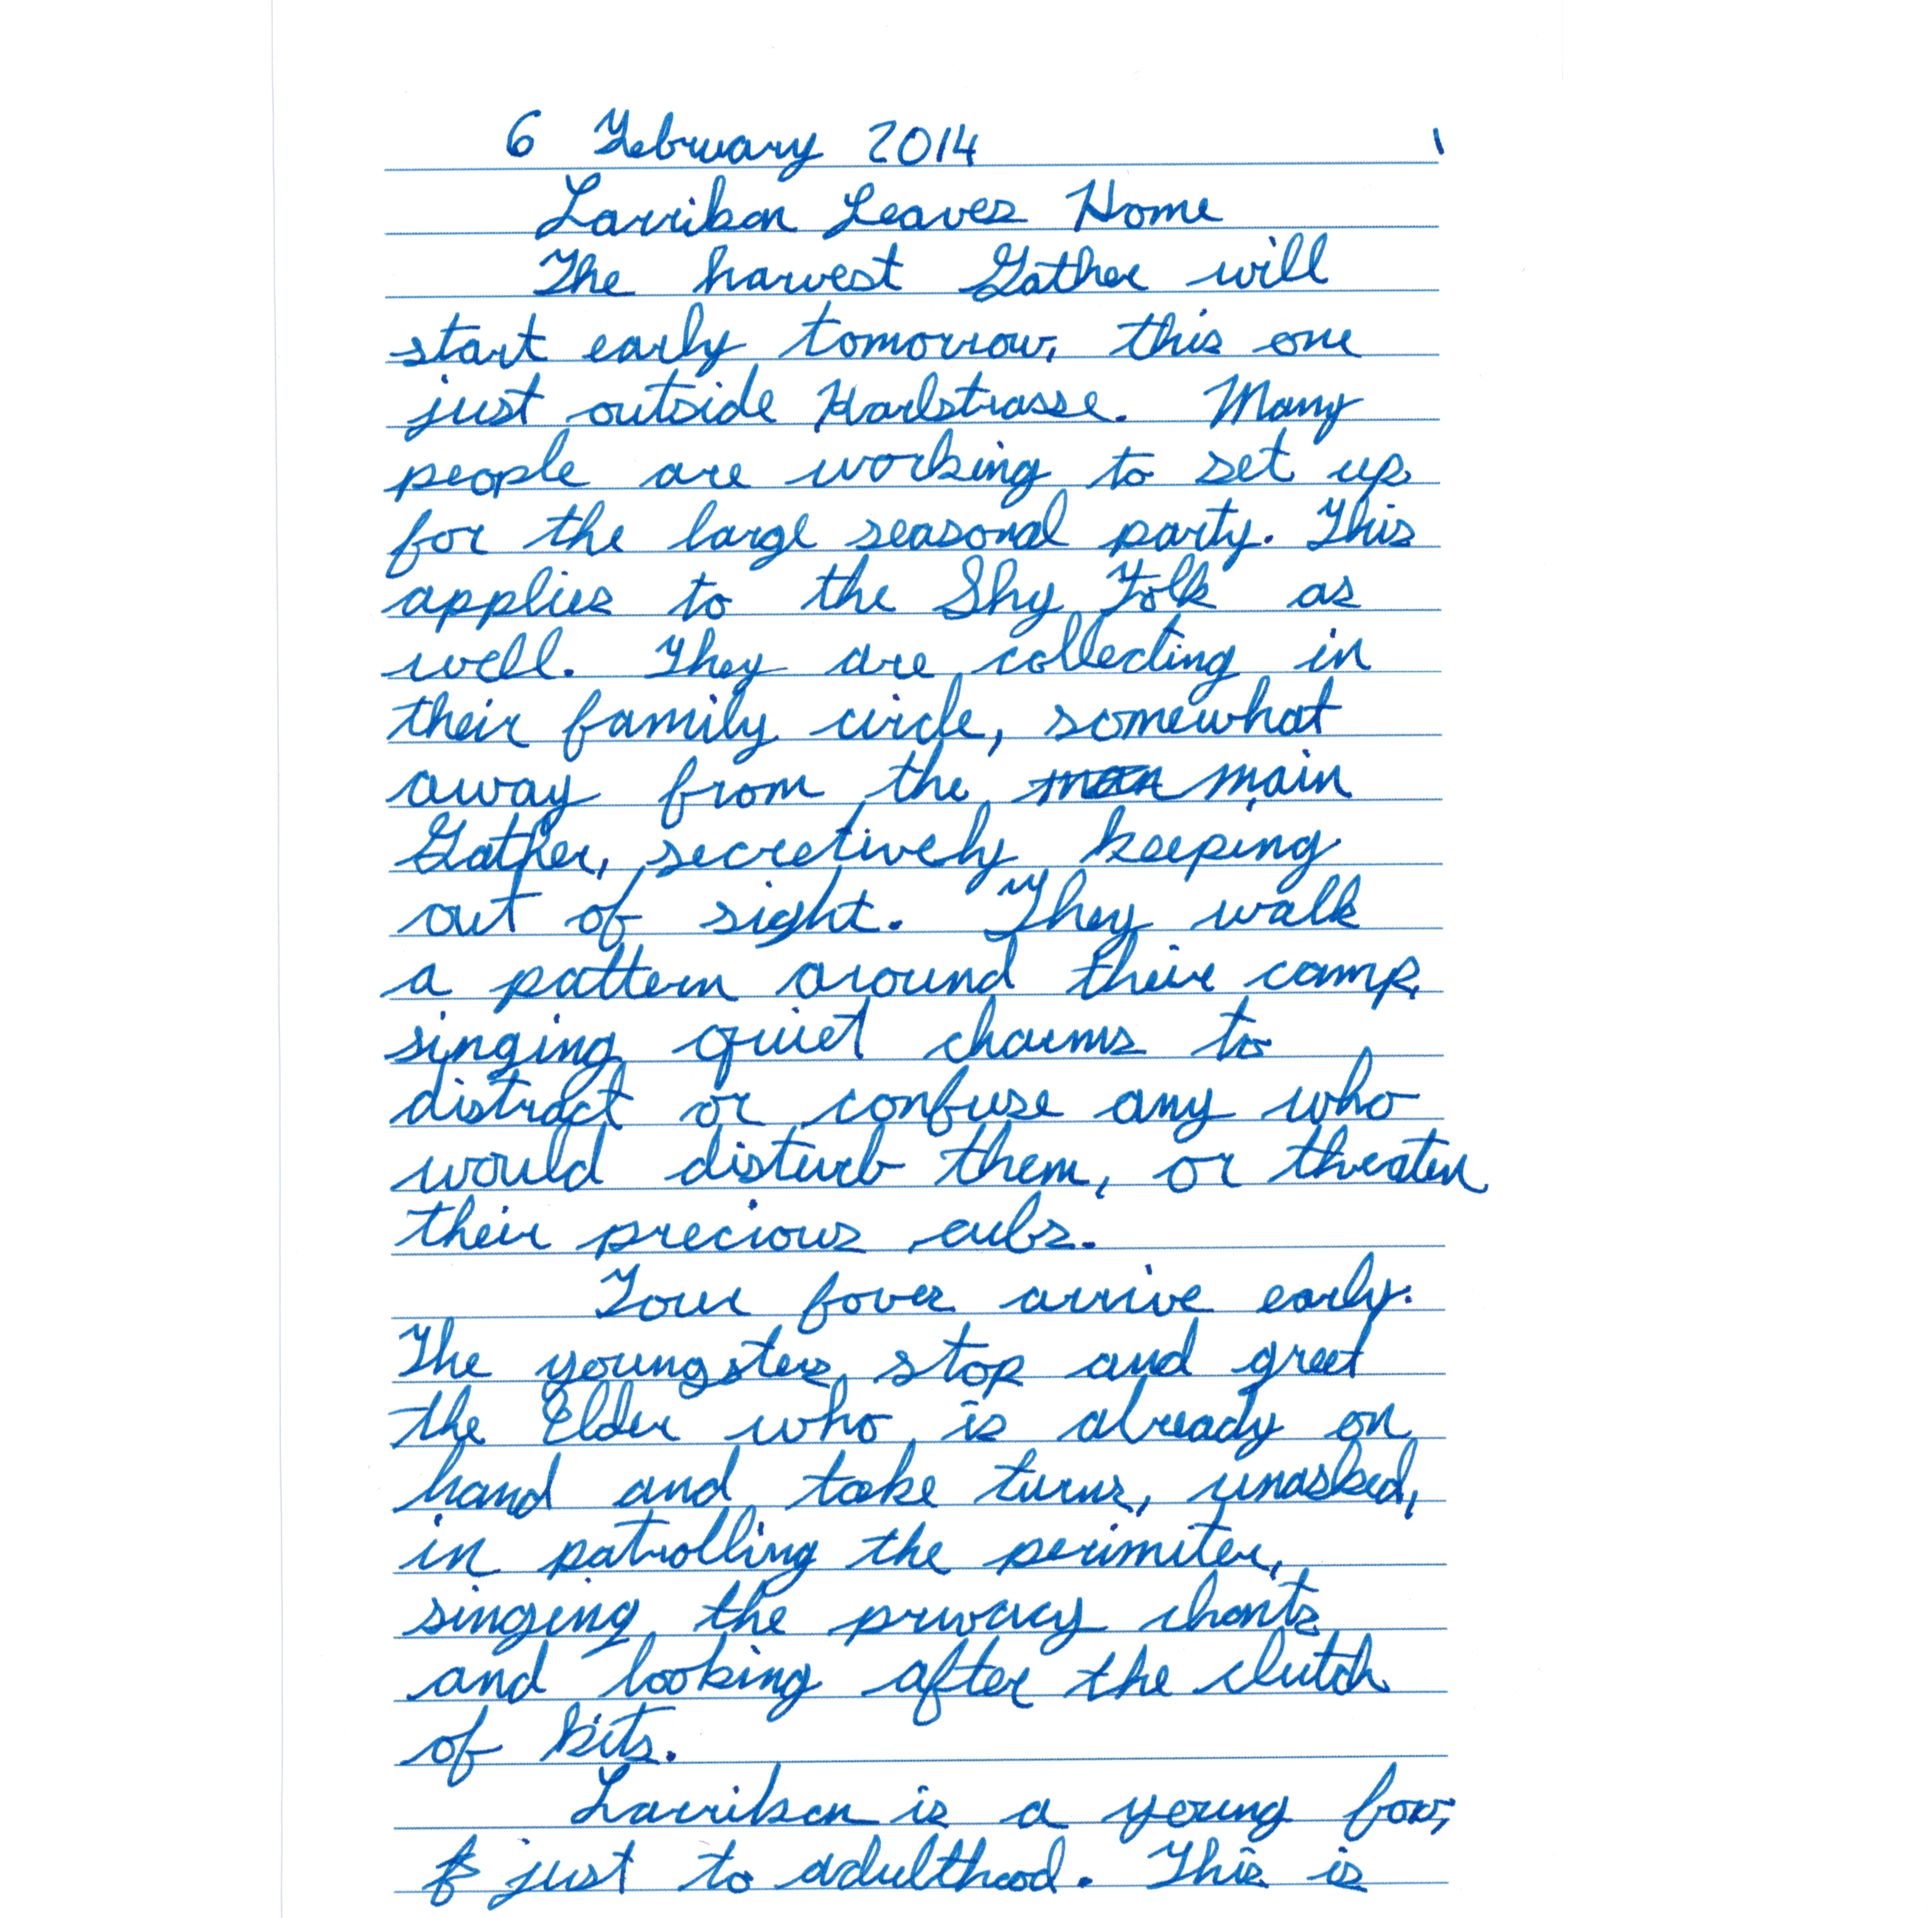 6 February 2014 1
Larrikan Leaves Home
The harvest Gather will
start early tomorrow, this one
just outside Karlstrasse. Many
people are working to set up
for the large seasonal party. This
applies to the Shy Folk as
well. They are collecting in
their family circle, somewhat
away from the main
Gather, secretively keeping
out of sight. They walk
a pattern around their camp
singing quiet charms to
distract or confuse any who
would disturb them, or threaten
their precious cubs.
Four foves arrive early.
The youngsters stop and greet
the Elder who is already on
hand and take turns, unasked,
in patrolling the perimiter,
singing the privacy chants
and looking after the clutch
of kits.
Larrikan is a young fox,
just to adulthood. This is